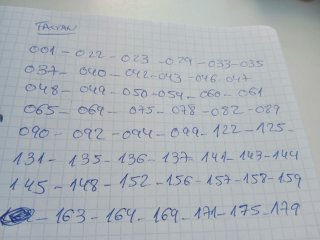 FALTAN
001 - 022 - 023 - 029 - 033 - 035
037 - 040 - 042 - 043 - 046 - 047
048 - 049 - 050 - 054 - 060 - 061
065 - 069 - 075 - 078 - 082 - 089
090 - 092 - 094 - 099 - 122 - 125 -
131 - 135 - 136 - 137 - 141 - 143 - 144
145 - 148 - 152 - 156 - 157 - 158 - 159
- 163 - 164 - 169 - 171 - 175 - 179